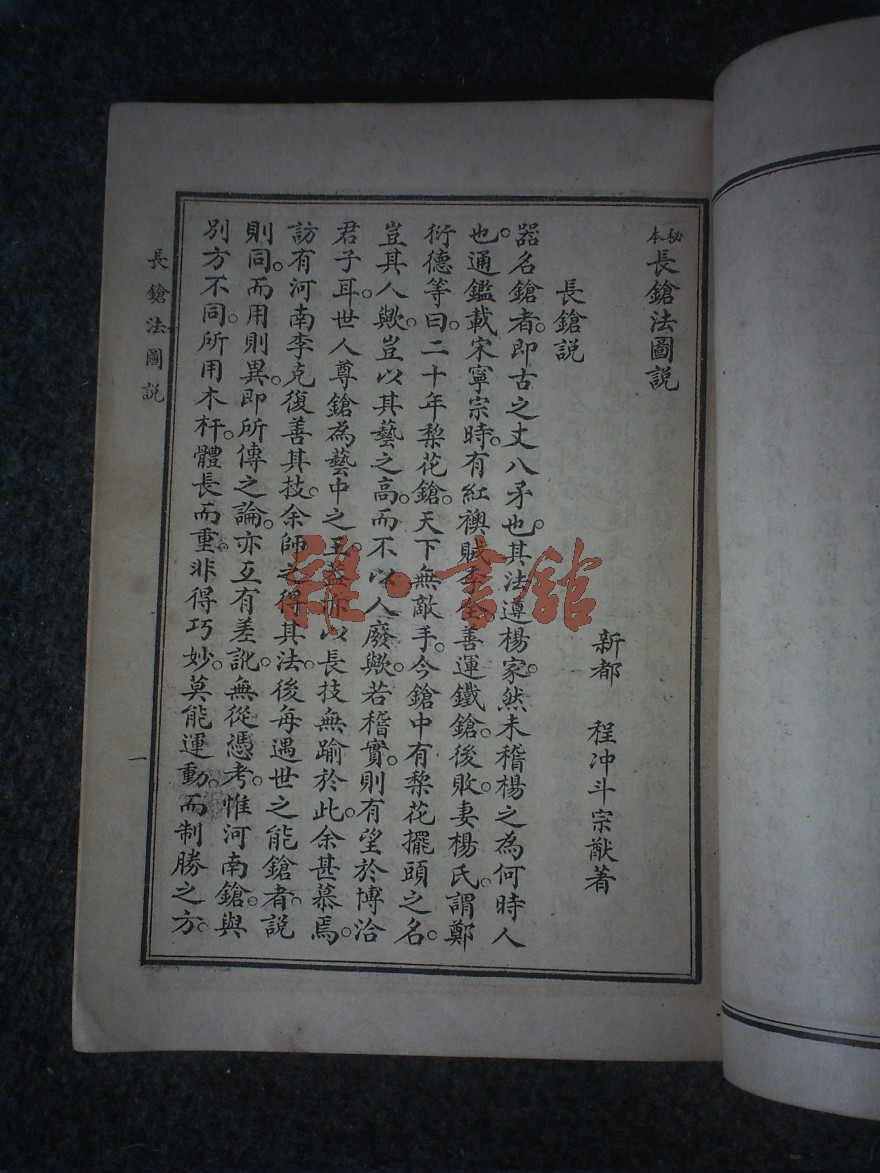 秘本長鎗法圖說
新都　程沖斗宗猷著
長鎗說
器名鎗者。即古之丈八矛也。其法遵楊家。然未稽楊之為何時人
也。通鑑載宋寧宗時。有紅襖賊李全。善運鐵鎗。後敗。妻楊氏。謂鄭
衍德等曰。二十年梨花鎗。天下無敵手。今鎗中有梨花擺頭之名。
豈其人歟。豈以其藝之高。而不以人廢歟。若稽實。則有望於博洽
君子耳。世人尊鎗為藝中之王。蓋亦以長技無踰於此。余甚慕焉。
訪有河南李克復善其技。余師之得其法。後每遇世之能鎗者。說
則同。而用則異。即所傳之論。亦互有差訛。無從憑考。惟河南鎗。與
別方不同。所用木杆。體長而重。非得巧妙。莫能運動。而制勝之方。
長鎗法圖說
一
雜·書館